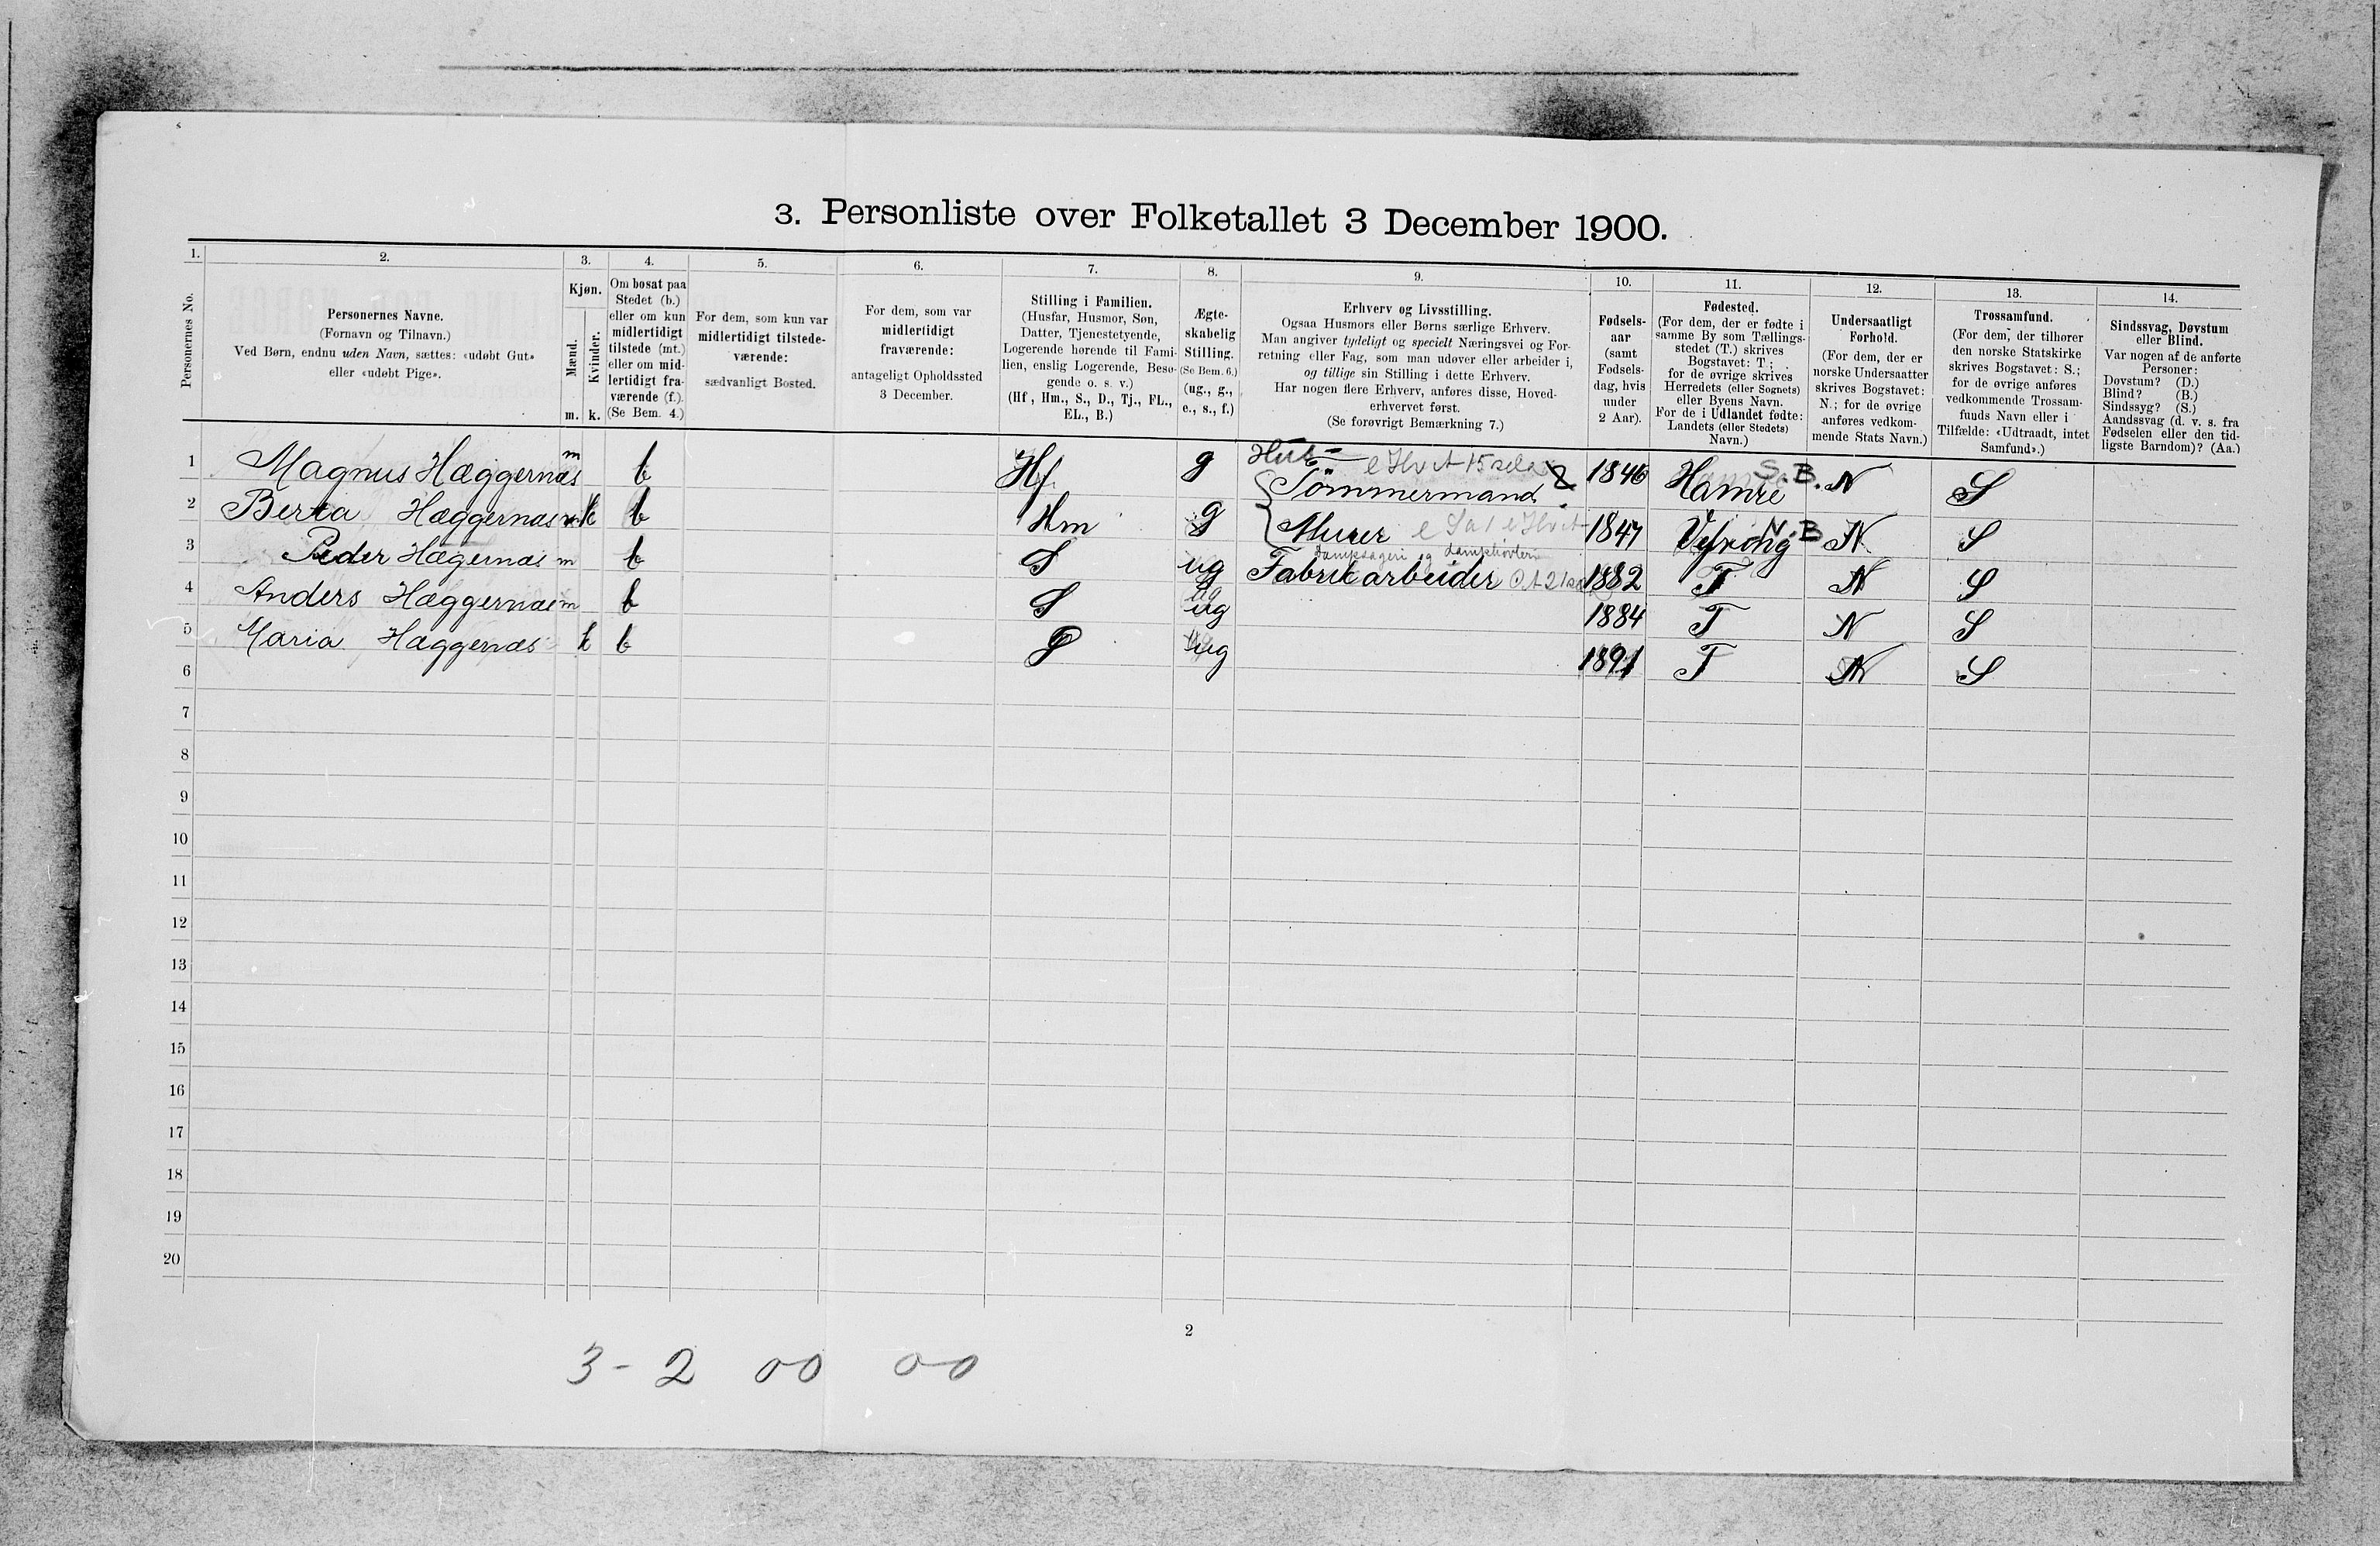 3. Personliste over Folketallet 3 December 1900.
1. 2. 3. 4. 5. 6. 7. 8. 9. 10. 11. 12. 13. 14.
Personernes No.
Personernes Navne.
(Fornavn og Tilnavn.)
Ved Børn, endnu uden Navn, sættes: «udøbt Gut»
eller «udøbt Pige».
Kjøn.
Mænd.
Kvinder.
m. k.
Om bosat paa
Stedet (b.)
eller om kun
midlertidigt
tilstede (mt.)
eller om mid-
lertidigt fra-
værende (f.).
(Se Bem. 4.)
For dem, som kun var
midlertidigt tilstede-
værende:
sædvanligt Bosted.
For dem, som var
midlertidigt
fraværende:
antageligt Opholdssted
3 December.
Stilling i Familien.
(Husfar, Husmor, Søn,
Datter, Tjenestetyende,
Logerende hørende til Fami-
lien, enslig Logerende, Besø-
gende o. s. v.)
(Hf., Hm., S., D., Tj., FL.,
EL., B.)
Ægte-
skabelig
Stilling.
(Se Bem. 6.)
(ug., g.,
e., s., f.)
Erhverv og Livsstilling.
Ogsaa Husmors eller Børns særlige Erhverv.
Man angiver tydeligt og specielt Næringsvei og For-
retning eller Fag, som man udøver eller arbeider i,
og tillige sin Stilling i dette Erhverv.
Har nogen flere Erhverv, anføres disse, Hoved-
erhvervet først.
(Se forøvrigt Bemærkning 7.)
Fødsels-
aar
(samt
Fødsels-
dag, hvis
under
2 Aar).
Fødested.
(For dem, der er fødte i
samme By som Tællings-
stedet (T.) skrives
Bogstavet: T;
for de øvrige skrives
Herredets (eller Sognets)
eller Byens Navn.
For de i Udlandet fødte:
Landets (eller Stedets)
Navn.)
Undersaatligt
Forhold.
(For dem, der er
norske Undersaatter
skrives Bogstavet:
N.; for de øvrige
anføres vedkom-
mende Stats Navn.)
Trossamfund.
(For dem, der tilhører
den norske Statskirke
skrives Bogstavet: S.;
for de øvrige anføres
vedkommende Trossam-
funds Navn eller i
Tilfælde: «Udtraadt, intet
Samfund».)
Sindssvag, Døvstum
eller Blind.
Var nogen af de anførte
Personer:
Døvstum? (D.)
Blind? (B.)
Sindssyg? (S.)
Aandssvag (d. v. s. fra
Fødselen eller den tid-
ligste Barndom)? (Aa.)
1 Magnus Hæggernæs m b Hf. g Hus- Tømmermand & 1846 Hamre S.B. N S
2 Berta Hæggernæs k b Hm g Murer 1847 B N S
3 Peder Hægernæs m b S ug Dampsageri og Damphøvleri Fabrikarbeider 1882 T N S
4 Anders Hæggernæs m b S ug 1884 T N S
5 Maria Hæggernæs k b D ug 1891 T N S
6
7
8
9
10
11
12
13
14
15
16
17
18
19
20
2
3 - 2 00 00